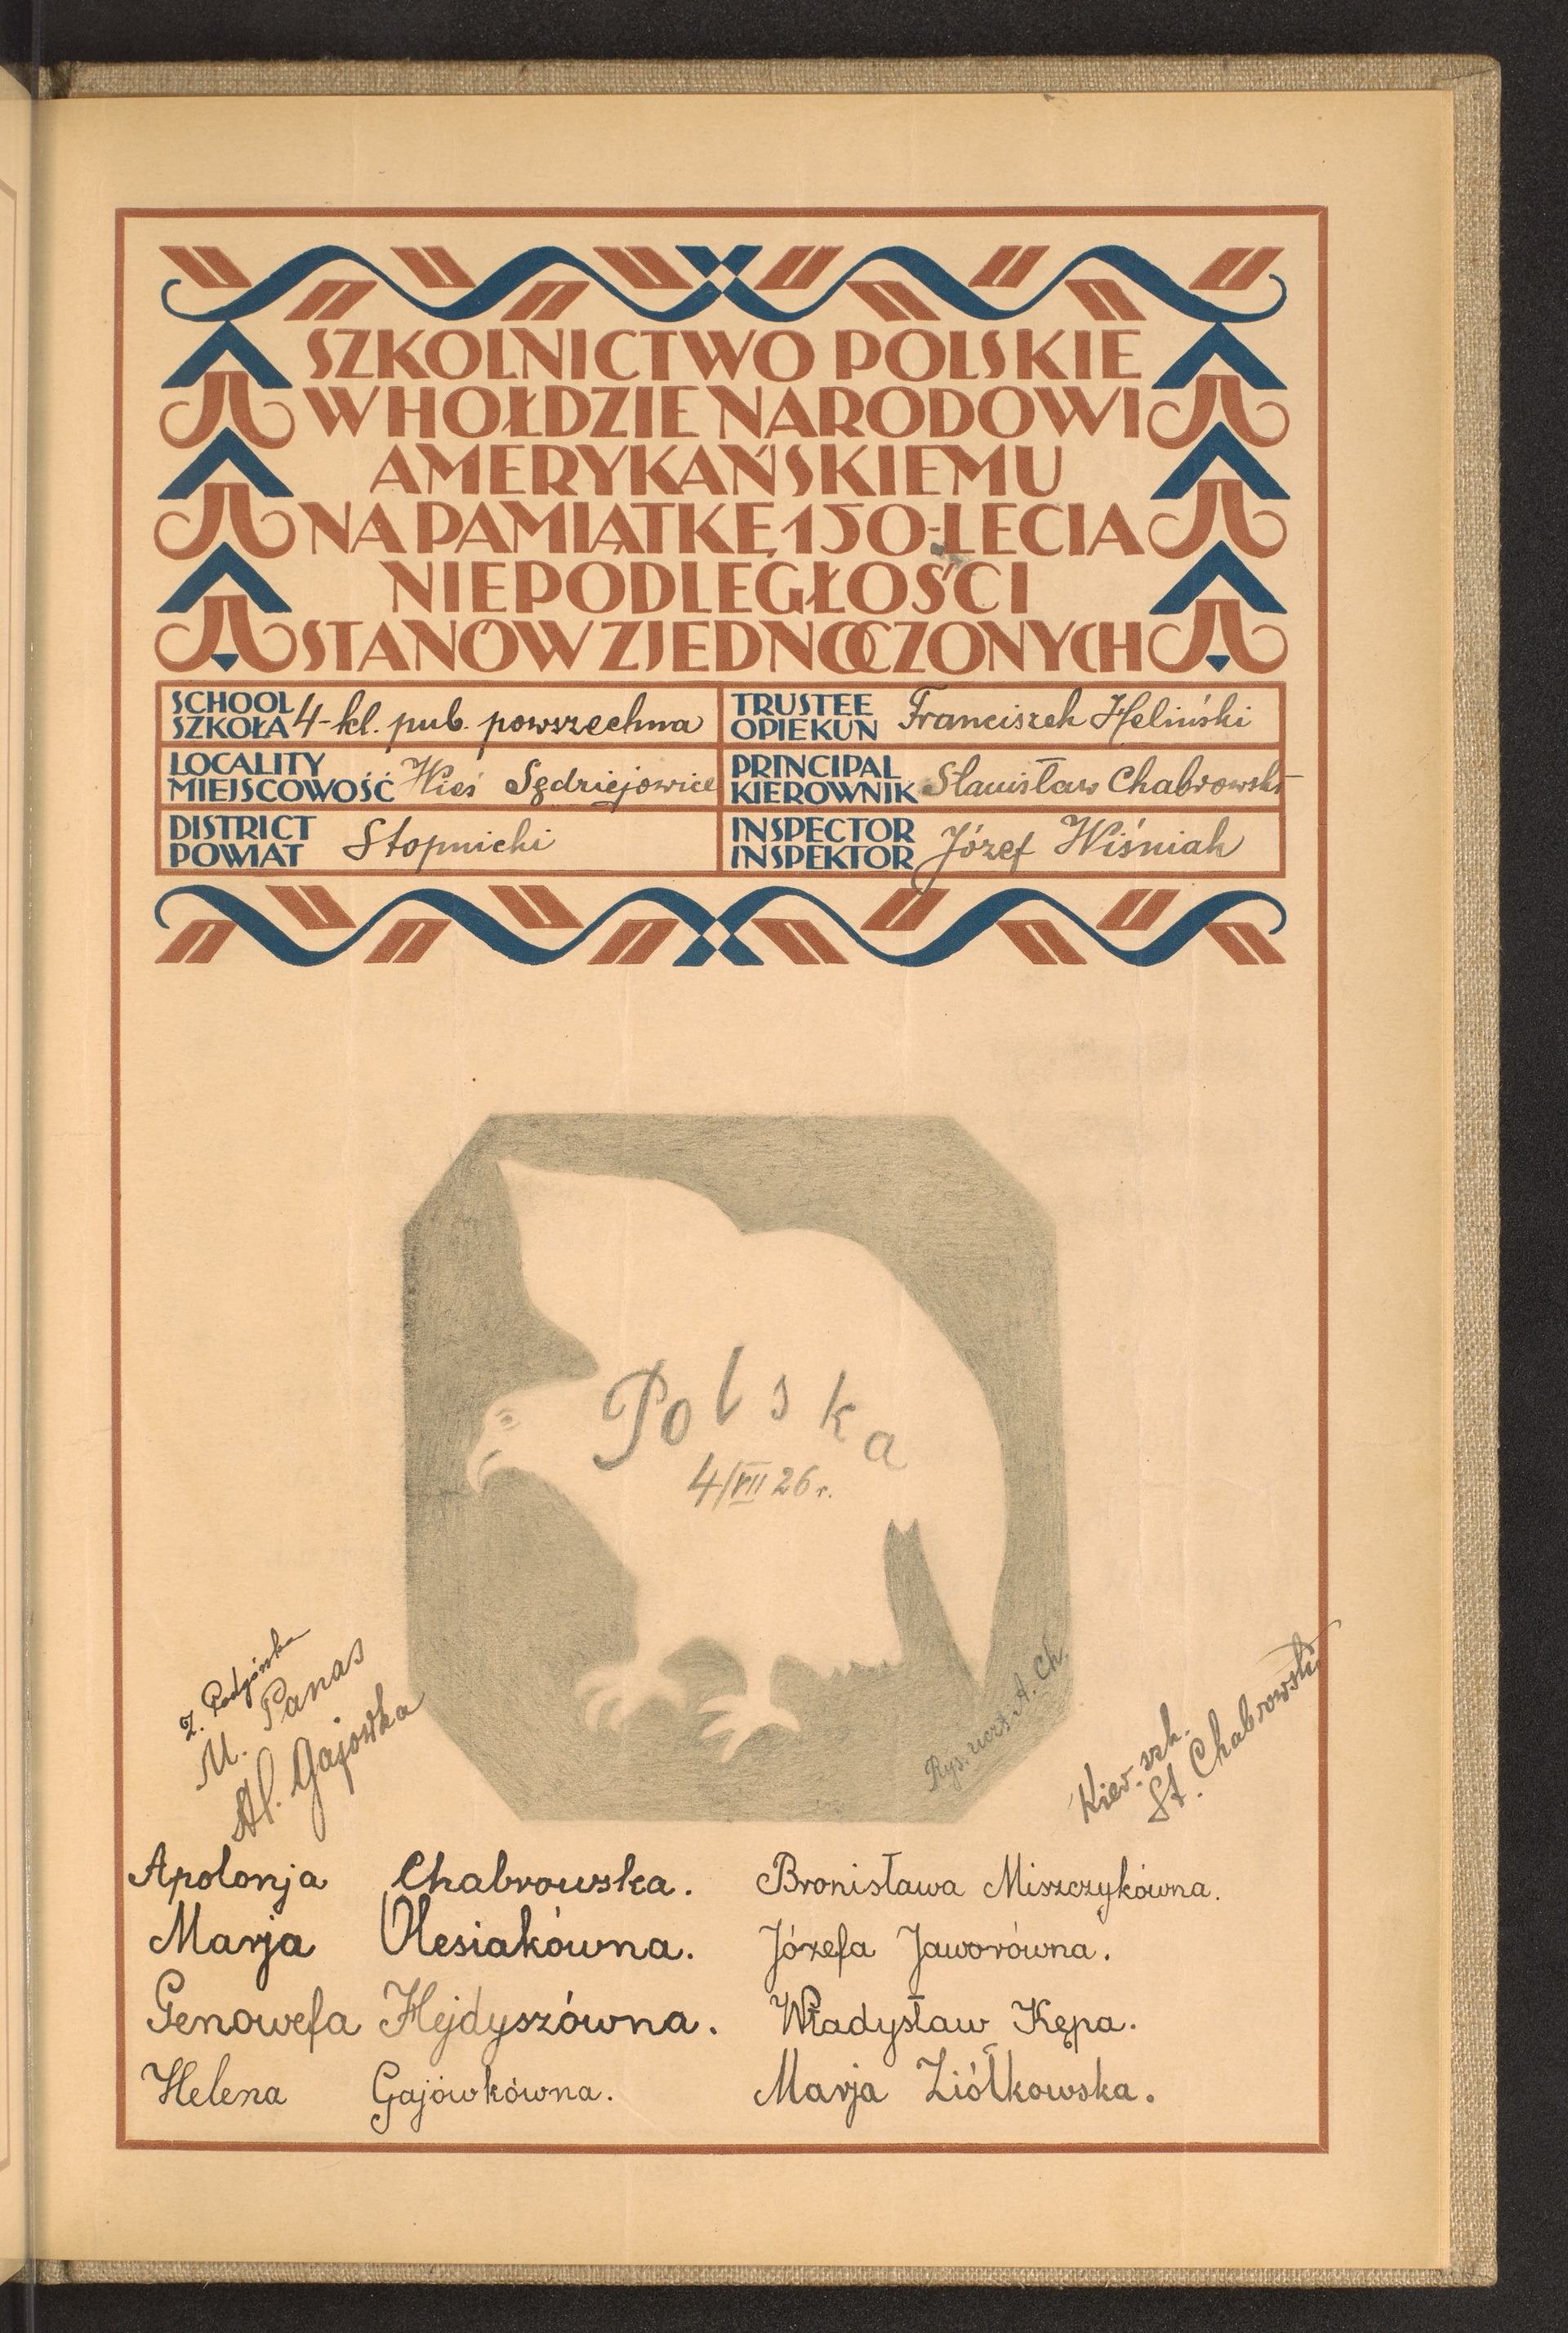 SZKOLNICTWO POLSKIE
W HOŁDZIE NARODOWI
AMERYKAŃSKIEMU
NA PAMIĄTKĘ 150-LECIA
NIEPODLEGŁOŚCI
STANÓW ZJEDNOCZONYCH
SCHOOL
SZKOŁA 4-kl. pub. powszechna
TRUSTEE
OPIEKUN Franciszek Heliński
LOCALITY
MIEJSCOWOŚĆ Wieś Sędziejowice
PRINCIPAL
KIEROWNIK Stanisław Chabrowski
DISTRICT
POWIAT Stopnicki
INSPECTOR
INSPEKTOR Józef Wiśniak
Polska
4/VII 26 r.
Rys. ucz. A. Ch.
Z. Podgórska
M. Panas
Al. Gajowka
Kier. szk.
St. Chabrowski
Apolonja Chabrowska. Bronisława Miszczykówna.
Marja Olesiakówna. Józefa Jaworówna.
Genowefa Hejdyszówna. Władysław Kępa.
Helena Gajówkówna. Marja Ziółkowska.